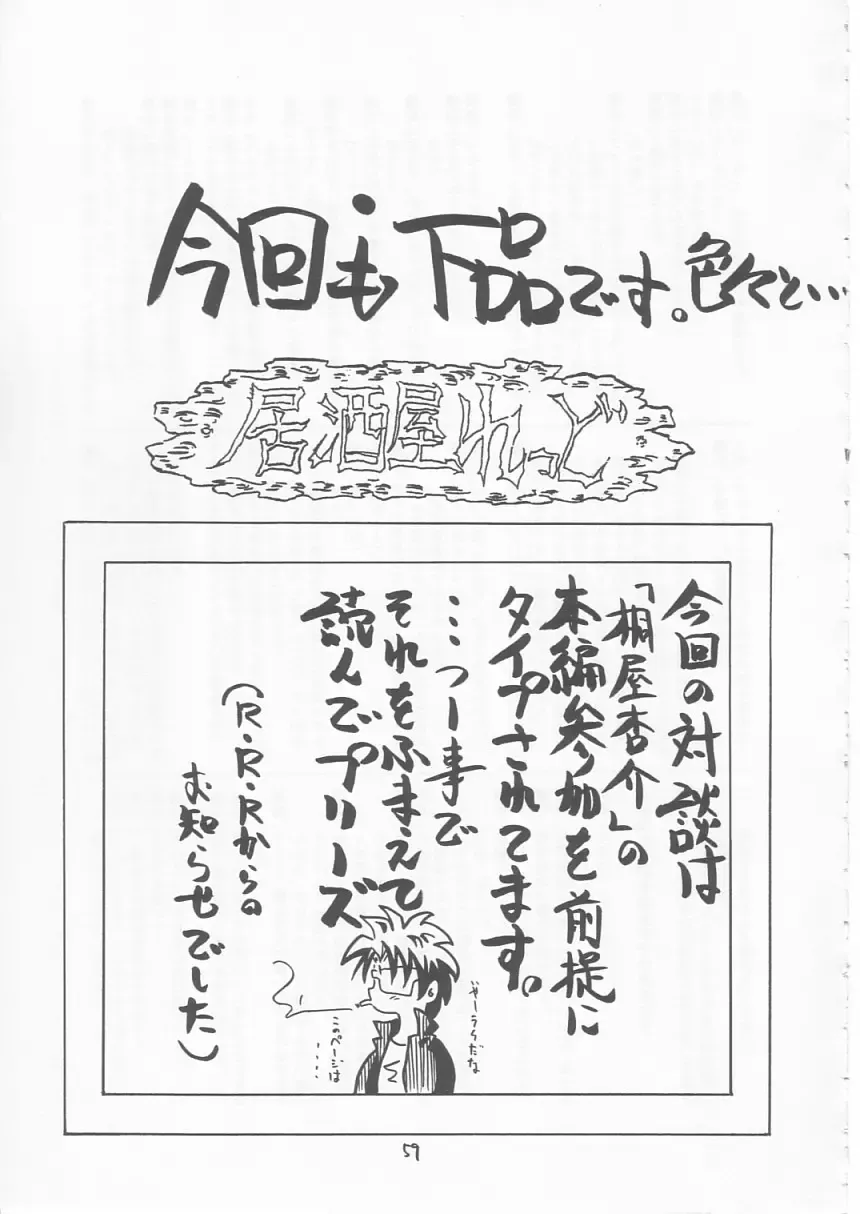 今回も下品です。色々と…
居酒屋れっど
今回の対談は
「桐屋杏介」の
本編参加を前提に
タイプされてます。
…つー事で
それをふまえて
読んでプリーズ
(R・R・Rからの
お知らせでした)
このページは……
59